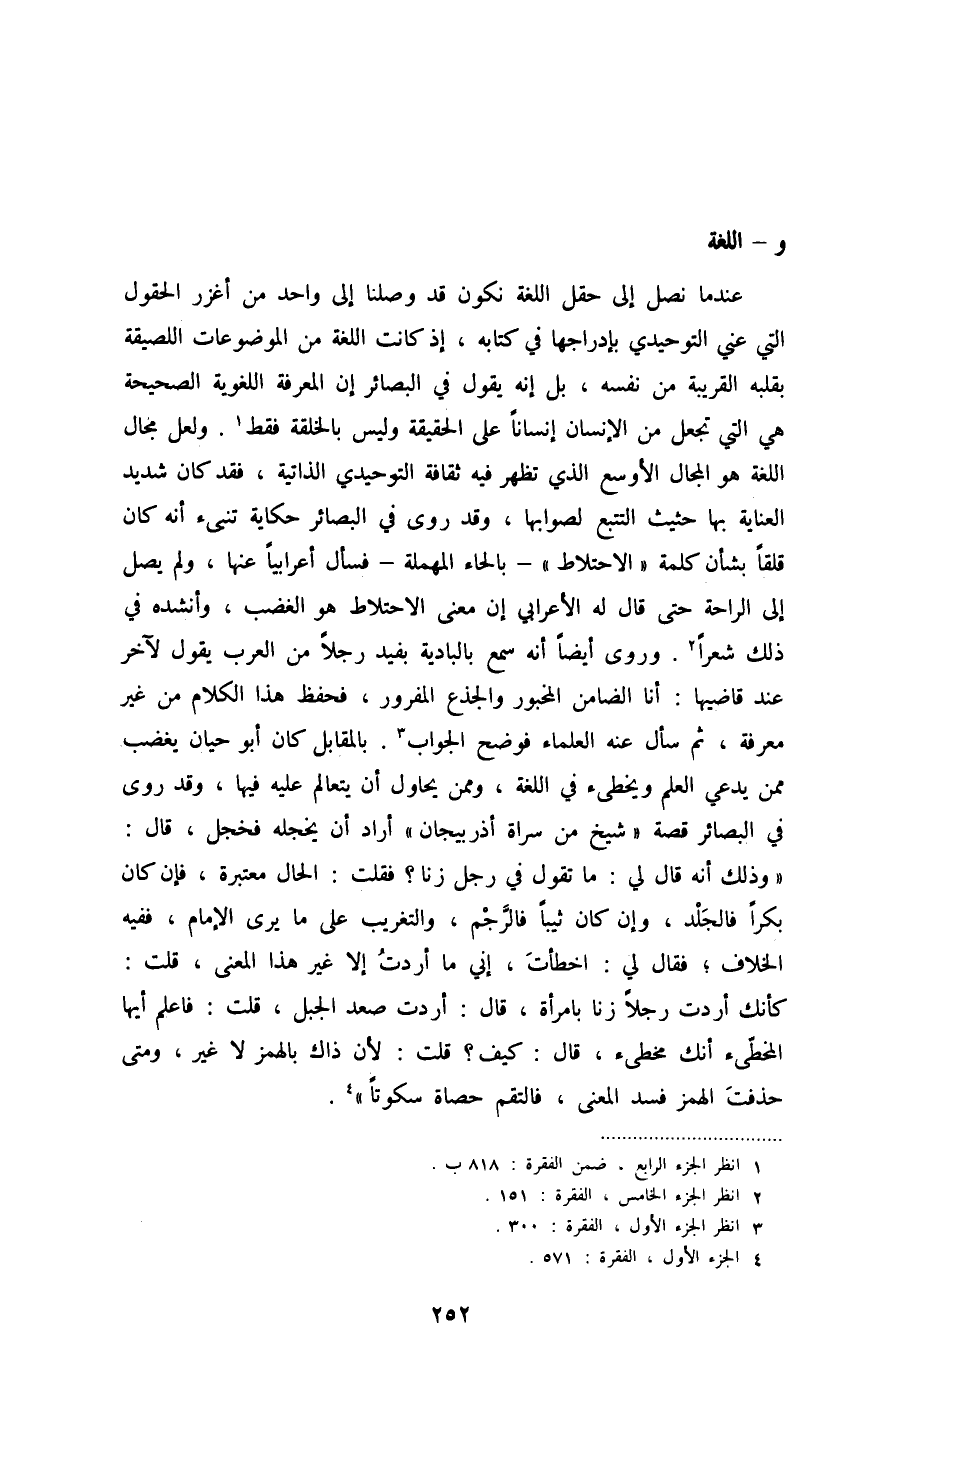 و – اللغة
عندما نصل إلى حقل اللغة نكون قد وصلنا إلى واحد من أغزر الحقول
التي عني التوحيدي بإدراجها في كتابه ، إذ كانت اللغة من الموضوعات اللصيقة
بقلبه القريبة من نفسه ، بل إنه يقول في البصائر إن المعرفة اللغوية الصحيحة
هي التي تجعل من الإنسان إنساناً على الحقيقة وليس بالخلقة فقط١ . ولعل مجال
اللغة هو المجال الأوسع الذي تظهر فيه ثقافة التوحيدي الذاتية ، فقد كان شديد
العناية بها حثيث التتبع لصوابها ، وقد روى في البصائر حكاية تنبىء أنه كان
قلقاً بشأن كلمة « الاحتلاط » – بالحاء المهملة – فسأل أعرابياً عنها ، ولم يصل
إلى الراحة حتى قال له الأعرابي إن معنى الاحتلاط هو الغضب ، وأنشده في
ذلك شعراً٢ . وروى أيضاً أنه سمع بالبادية بفيد رجلاً من العرب يقول لآخر
عند قاضيها : أنا الضامن المخبور والجذع المفرور ، فحفظ هذا الكلام من غير
معرفة ، ثم سأل عنه العلماء فوضح الجواب٣ . بالمقابل كان أبو حيان يغضب
ممن يدعي العلم ويخطىء في اللغة ، وممن يحاول أن يتعالم عليه فيها ، وقد روى
في البصائر قصة « شيخ من سراة أذربيجان » أراد أن يخجله فخجل ، قال :
« وذلك أنه قال لي : ما تقول في رجل زنا ؟ فقلت : الحال معتبرة ، فإن كان
بكراً فالجَلْد ، وإن كان ثيباً فالرَّجْم ، والتغريب على ما يرى الإمام ، ففيه
الخلاف ؛ فقال لي : اخطأتَ ، إني ما أردتُ إلا غير هذا المعنى ، قلت :
كأنك أردت رجلاً زنا بامرأة ، قال : أردت صعد الجبل ، قلت : فاعلم أيها
المخطّىء أنك مخطىء ، قال : كيف ؟ قلت : لأن ذاك بالهمز لا غير ، ومتى
حذفتَ الهمز فسد المعنى ، فالتقم حصاة سكوتاً »٤ .
١ انظر الجزء الرابع ، ضمن الفقرة : ٨١٨ ب .
٢ انظر الجزء الخامس ، الفقرة : ١٥١ .
٣ انظر الجزء الأول ، الفقرة : ٣٠٠ .
٤ الجزء الأول ، الفقرة : ٥٧١ .
٢٥٢